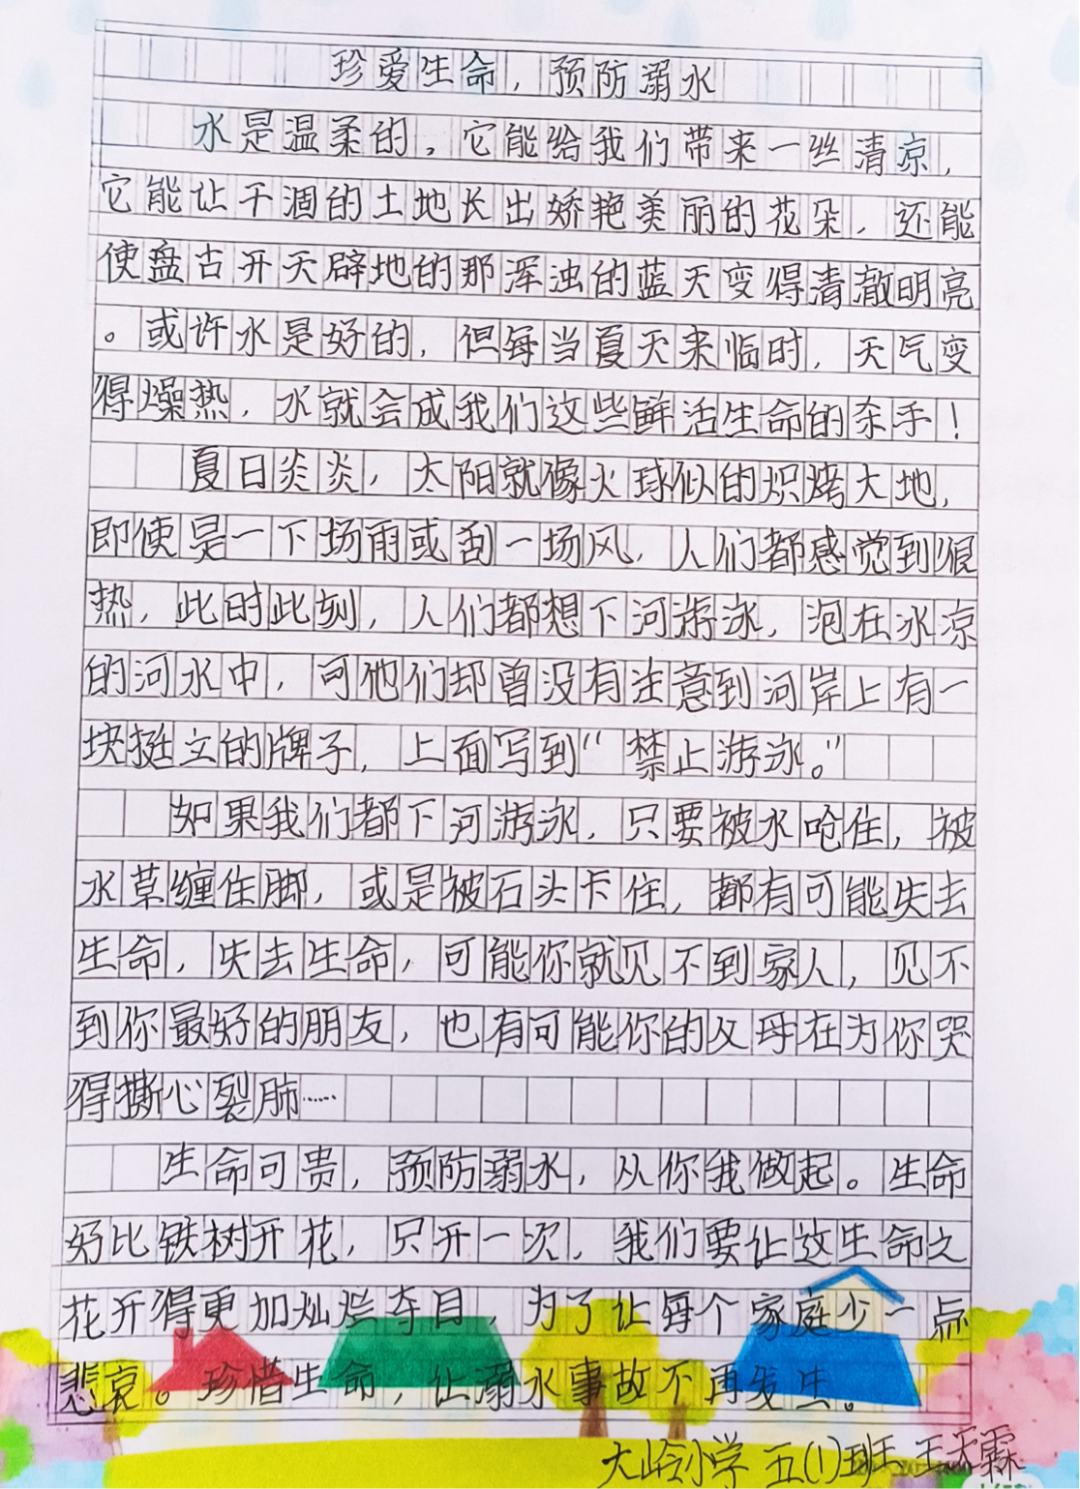 珍爱生命，预防溺水
水是温柔的。它能给我们带来一丝清凉，
它能让干涸的土地长出娇艳美丽的花朵，还能
使盘古开天辟地的那浑浊的蓝天变得清澈明亮
。或许水是好的，但每当夏天来临时，天气变
得燥热，水就会成我们这些鲜活生命的杀手！
夏日炎炎，太阳就像火球似的炽烤大地，
即使是一下场雨或刮一场风，人们都感觉到很
热，此时此刻，人们都想下河游泳，泡在冰凉
的河水中，可他们却曾没有注意到河岸上有一
块挺立的牌子，上面写到“禁止游泳。”
如果我们都下河游泳，只要被水呛住，被
水草缠住脚，或是被石头卡住，都有可能失去
生命，失去生命，可能你就见不到家人，见不
到你最好的朋友，也有可能你的父母在为你哭
得撕心裂肺……
生命可贵，预防溺水，从你我做起。生命
好比铁树开花，只开一次，我们要让这生命之
花开得更加灿烂夺目，为了让每个家庭少一点
悲哀。珍惜生命，让溺水事故不再发生。
大岭小学 五(1)班 王天霖